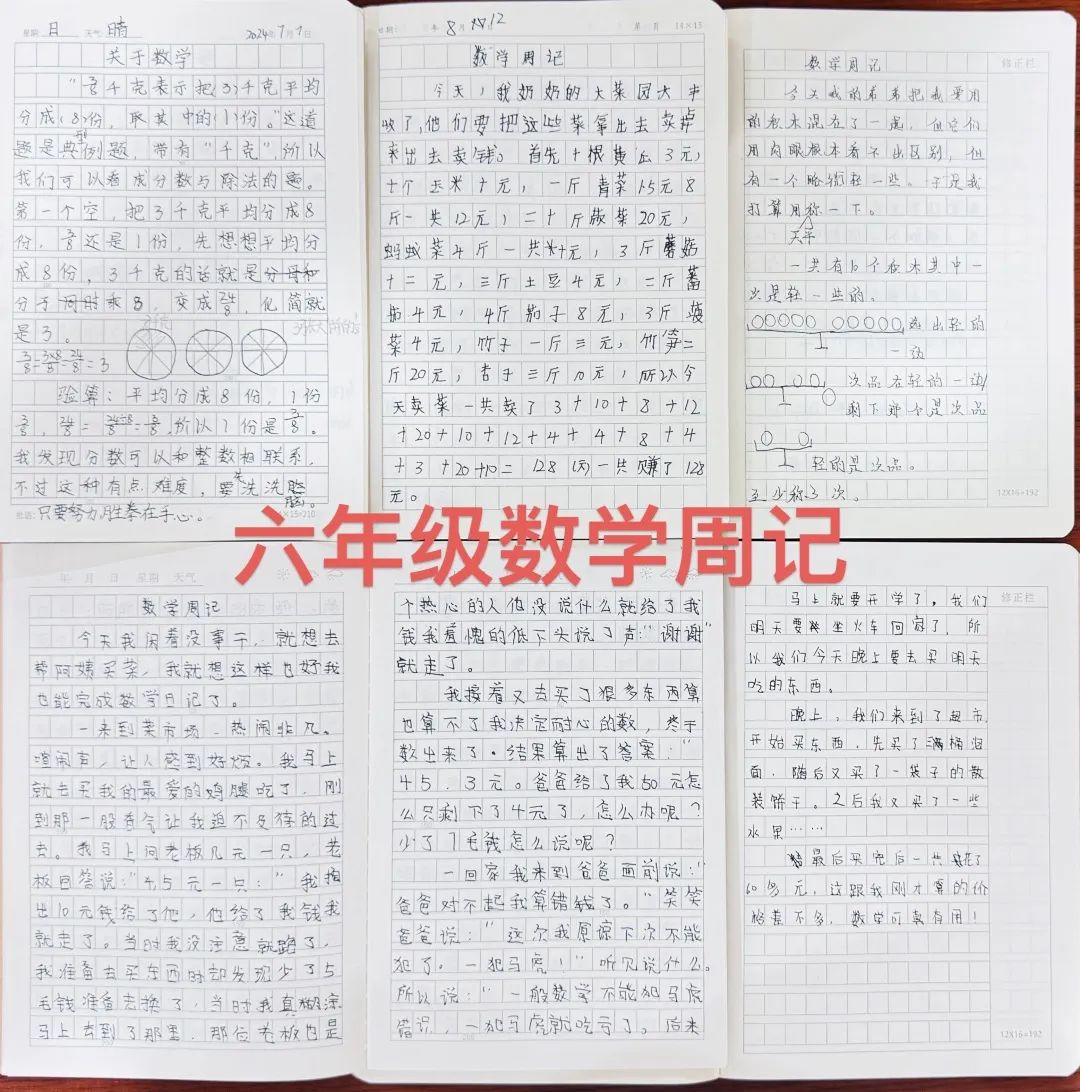 星期 日 天气 晴 2024年7月7日
关于数学
"3/8千克表示把(3)千克平均
分成(8)份,取其中的(1)份。"这道
题是典型例题,带有"千克",所以
我们可以看成分数与除法的题。
第一个空,把3千克平均分成8
份,3/8还是1份,先想想平均分
成8份,3千克的话就是分母和
分子同时乘8,变成24/8,化简就
是3。
3/8=3×8/8=24/8=3
验算:平均分成8份,1份
3/8,24/8=24÷8/8=3/8,所以1份是3/8。
我发现分数可以和整数相联系,
不过这种有点难度,要先洗洗脑
脑。
批语: 只要努力,胜券在手心。
14×15=210
日期: 年 8月 12 第 页 14×15
数学周记
今天,我奶奶的大菜园大丰
收了,他们要把这些菜拿出去卖掉
来出去卖钱。首先十根黄瓜3元,
十个玉米十元,一斤青菜1.5元8
斤一共12元,二十斤蕨菜20元,
蚂蚁菜4斤一共十元,3斤蘑菇
十二元,三斤土豆4元,二斤蕃
茄4元,4斤茄子8元,3斤菠
菜4元,竹子一斤三元,竹笋二
斤20元,杏子三斤10元,所以今
天卖菜一共卖了3+10+8+12
+20+10+12+4+4+8+4
+3+20+10=128(元)一共赚了128
元。
修正栏
数学周记
今天我的弟弟把我要用
的积木混在了一起,但它们
用肉眼根本看不出区别,但
有一个略微轻一些。于是我
打算用称一下。
天平
一共有10个积木其中一
次是轻一些的。
选出轻的
一边
次品在轻的一边/
剩下那个是次品
轻的是次品。
至少称3次。
12X16=192
六年级数学周记
年 月 日 星期 天气
数学周记
今天我闲着没事干,就想去
帮阿姨买菜,我就想这样也好我
也能完成数学日记了。
一来到菜市场,热闹非凡。
喧闹声,让人感到好烦。我马上
就去买我的最爱的鸡腿吃了,刚
到那一股香气让我迫不及待的过
去。我马上问老板几元一只,老
板回答说:"4.5元一只:"我掏
出10元钱给了他,他给了我钱我
就走了。当时我没注意就跑了,
我准备去买东西时却发现少了5
毛钱准备去换了,当时我真糊涂
马上去到了那里,那位老板也是
个热心的人他没说什么就给了我
钱我羞愧的低下头说了声:"谢谢"
就走了。
我接着又去买了很多东西算
也算不了我决定耐心的数,终于
数出来了。结果算出了答案:"
45.3元。爸爸给了我50元怎
么只剩下了4元了,怎么办呢?
少了7毛钱怎么说呢?
一回家我来到爸爸面前说:"
爸爸对不起我算错钱了。"笑笑
爸爸说:"这次我原谅下次不能
犯了。一犯马虎!"听见说什么。
所以说:"一般数学不能犯马虎
错误,一犯马虎就吃亏了。后来
修正栏
马上就要开学了,我们
明天要坐火车回家了,所
以我们今天晚上要去买明天
吃的东西。
晚上,我们来到了超市,
开始买东西,先买了满桶泡
面,随后又买了一袋子的散
装饼干。之后我又买了一些
水果……
最后买完后一共花了
60多元,这跟我刚才算的价
格差不多,数学可真有用!
12X16=192